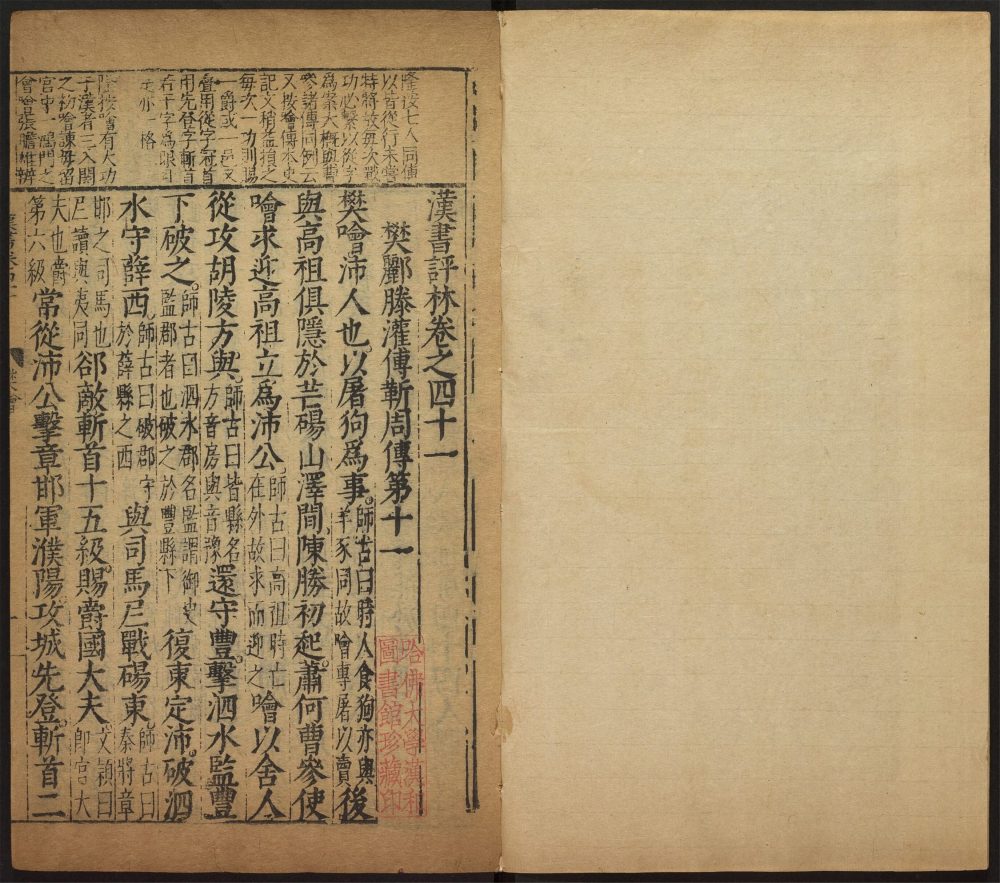 漢書評林卷之四十一
樊酈滕灌傅靳周傳第十一
樊噲沛人也以屠狗爲事師古曰時人食狗亦與羊豕同故噲專屠以賣後
與高祖俱隱於芒碭山澤間陳勝初起蕭何曹參使
噲求迎高祖立爲沛公師古曰高祖時亡在外故求而迎之噲以舍人
從攻胡陵方與師古曰皆縣名方音房與音豫還守豐擊泗水監豐
下破之師古曰泗水郡名監謂御史監郡者也破之於豐縣下復東定沛破泗
水守薛西師古曰破郡守於薛縣之西與司馬𡰥戰碭東師古曰秦將章
邯之司馬也𡰥讀與夷同郤敵斬首十五級賜爵國大夫文穎曰卽官大
夫也爵第六級常從沛公擊章邯軍濮陽攻城先登斬首二
以首從行未嘗
特將故每次戰
功必繫以從字
爲案大槩與曹
參諸傳同例云
又按噲傳本史
記文稍益損之
每次一功則賜
一爵或一邑又
疊用從字冠首
用先登字斬首
若干字爲眼目
亦一格
噲有大功
于漢者三入關
之初噲諫毋留
宮中一鴻門之
會噲
哈佛大學漢和
圖書館珍藏印